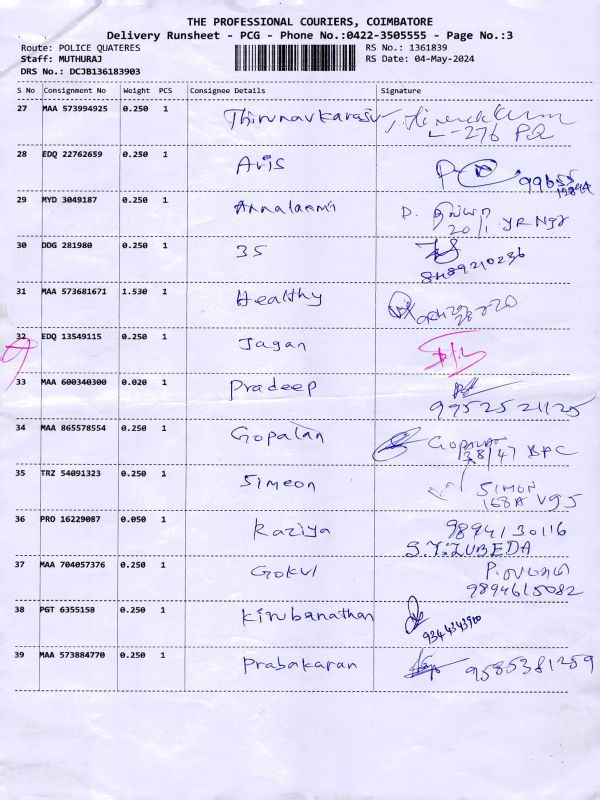 THE PROFESSIONAL COURIERS, COIMBATORE
Delivery Runsheet - PCG - Phone No.:0422-3505555 - Page No.:3
Route: POLICE QUATERES RS No.: 1361839
Staff: MUTHURAJ RS Date: 04-May-2024
DRS No.: DCJB136183903
S No Consignment No Weight PCS Consignee Details Signature
27 MAA 573994925 0.250 1 Thirunavkarasu
L-276 PQ
28 EDQ 22762659 0.250 1 Avis
29 MYD 3049187 0.250 1 Annalaxmi D.
20/1
30 DDG 281980 0.250 1 35
8489210236
31 MAA 573681671 1.530 1 Healthy
32 EDQ 13549115 0.250 1 Jagan
33 MAA 600340300 0.020 1 Pradeep
9952521125
34 MAA 865578554 0.250 1 Gopalan GOPALAN
38/47 BPC
35 TRZ 54091323 0.250 1 Simeon SIMON
168A VGJ
36 PRO 16229087 0.050 1 Raziya 9894130116
S.Y.ZUBEDA
37 MAA 704057376 0.250 1 Gokul
9894615082
38 PGT 6355158 0.250 1 Kirubanathan
9344343910
39 MAA 573884770 0.250 1 Prabakaran 9585381259